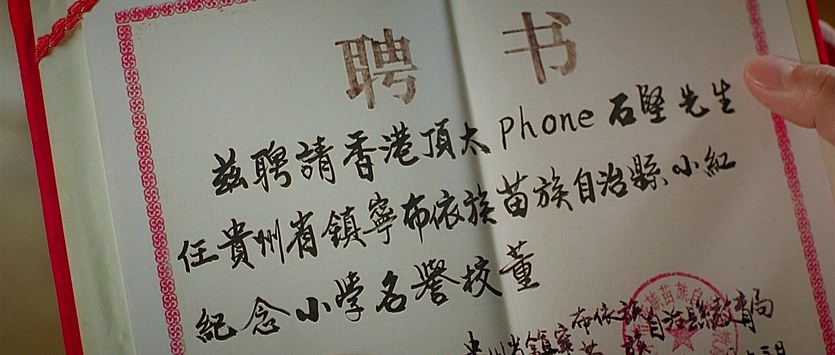 聘书
兹聘請香港頂太phone石堅先生
任貴州省鎮寧布依族苗族自治縣小紅
紀念小學名譽校董
州省鎮寧布依族
自治縣教育局